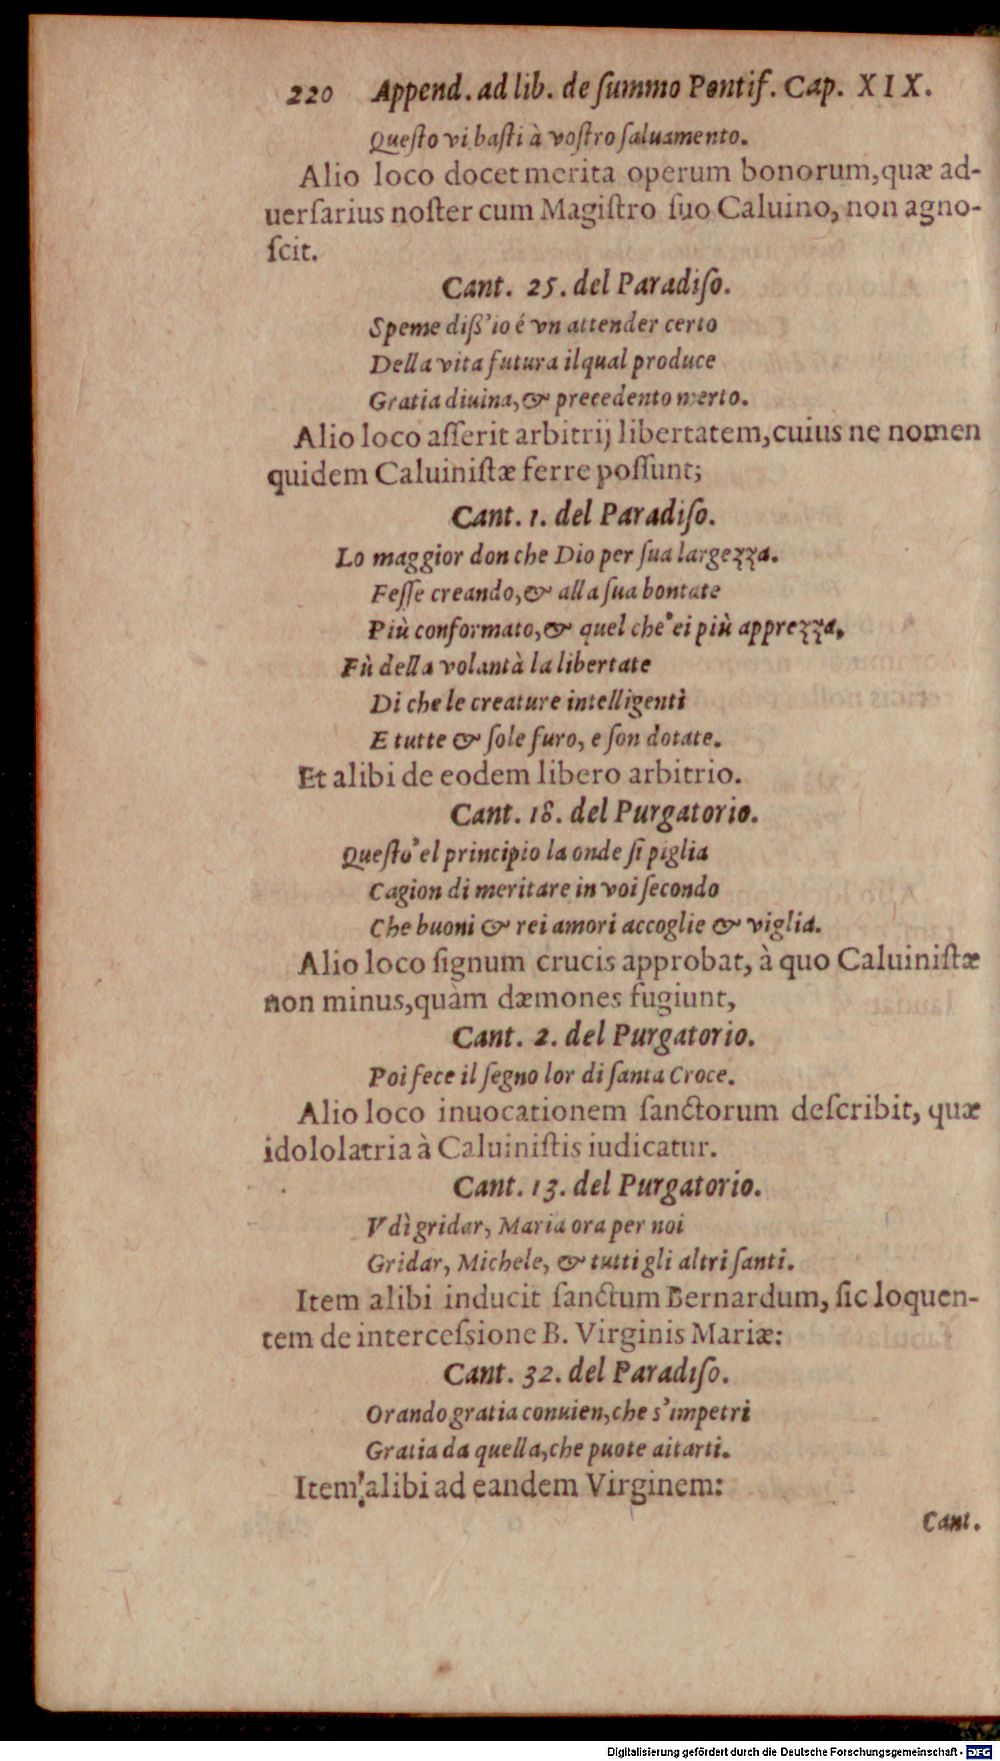 220 Append. ad lib. de ſummo Pontif. Cap. XIX.
Queſto vi baſti à voſtro ſaluamento.
Alio loco docet merita operum bonorum, quæ ad-
uerſarius noſter cum Magiſtro ſuo Caluino, non agno-
ſcit.
Cant. 25. del Paradiſo.
Speme diß'io é vn attender certo
Della vita futura il qual produce
Gratia diuina, & precedento merto.
Alio loco aſſerit arbitrij libertatem, cuius ne nomen
quidem Caluiniſtæ ferre poſſunt;
Cant. 1. del Paradiſo.
Lo maggior don che Dio per ſua largezza.
Feſſe creando, & alla ſua bontate
Più conformato, & quel che'ei più apprezza,
Fù della volantà la libertate
Di che le creature intelligenti
E tutte & ſole furo, e ſon dotate.
Et alibi de eodem libero arbitrio.
Cant. 18. del Purgatorio.
Queſto'el principio la onde ſi piglia
Cagion di meritare in voi ſecondo
Che buoni & rei amori accoglie & viglia.
Alio loco ſignum crucis approbat, à quo Caluiniſtæ
non minus, quàm dæmones fugiunt,
Cant. 2. del Purgatorio.
Poi fece il ſegno lor di ſanta Croce.
Alio loco inuocationem ſanctorum deſcribit, quæ
idololatria à Caluiniſtis iudicatur.
Cant. 13. del Purgatorio.
Vdì gridar, Maria ora per noi
Gridar, Michele, & tutti gli altri ſanti.
Item alibi inducit ſanctum Bernardum, ſic loquen-
tem de interceſsione B. Virginis Mariæ:
Cant. 32. del Paradiſo.
Orando gratia conuien, che s'impetri
Gratia da quella, che puote aitarti.
Item alibi ad eandem Virginem:
Cant.
Digitalisierung gefördert durch die Deutsche Forschungsgemeinschaft - DFG